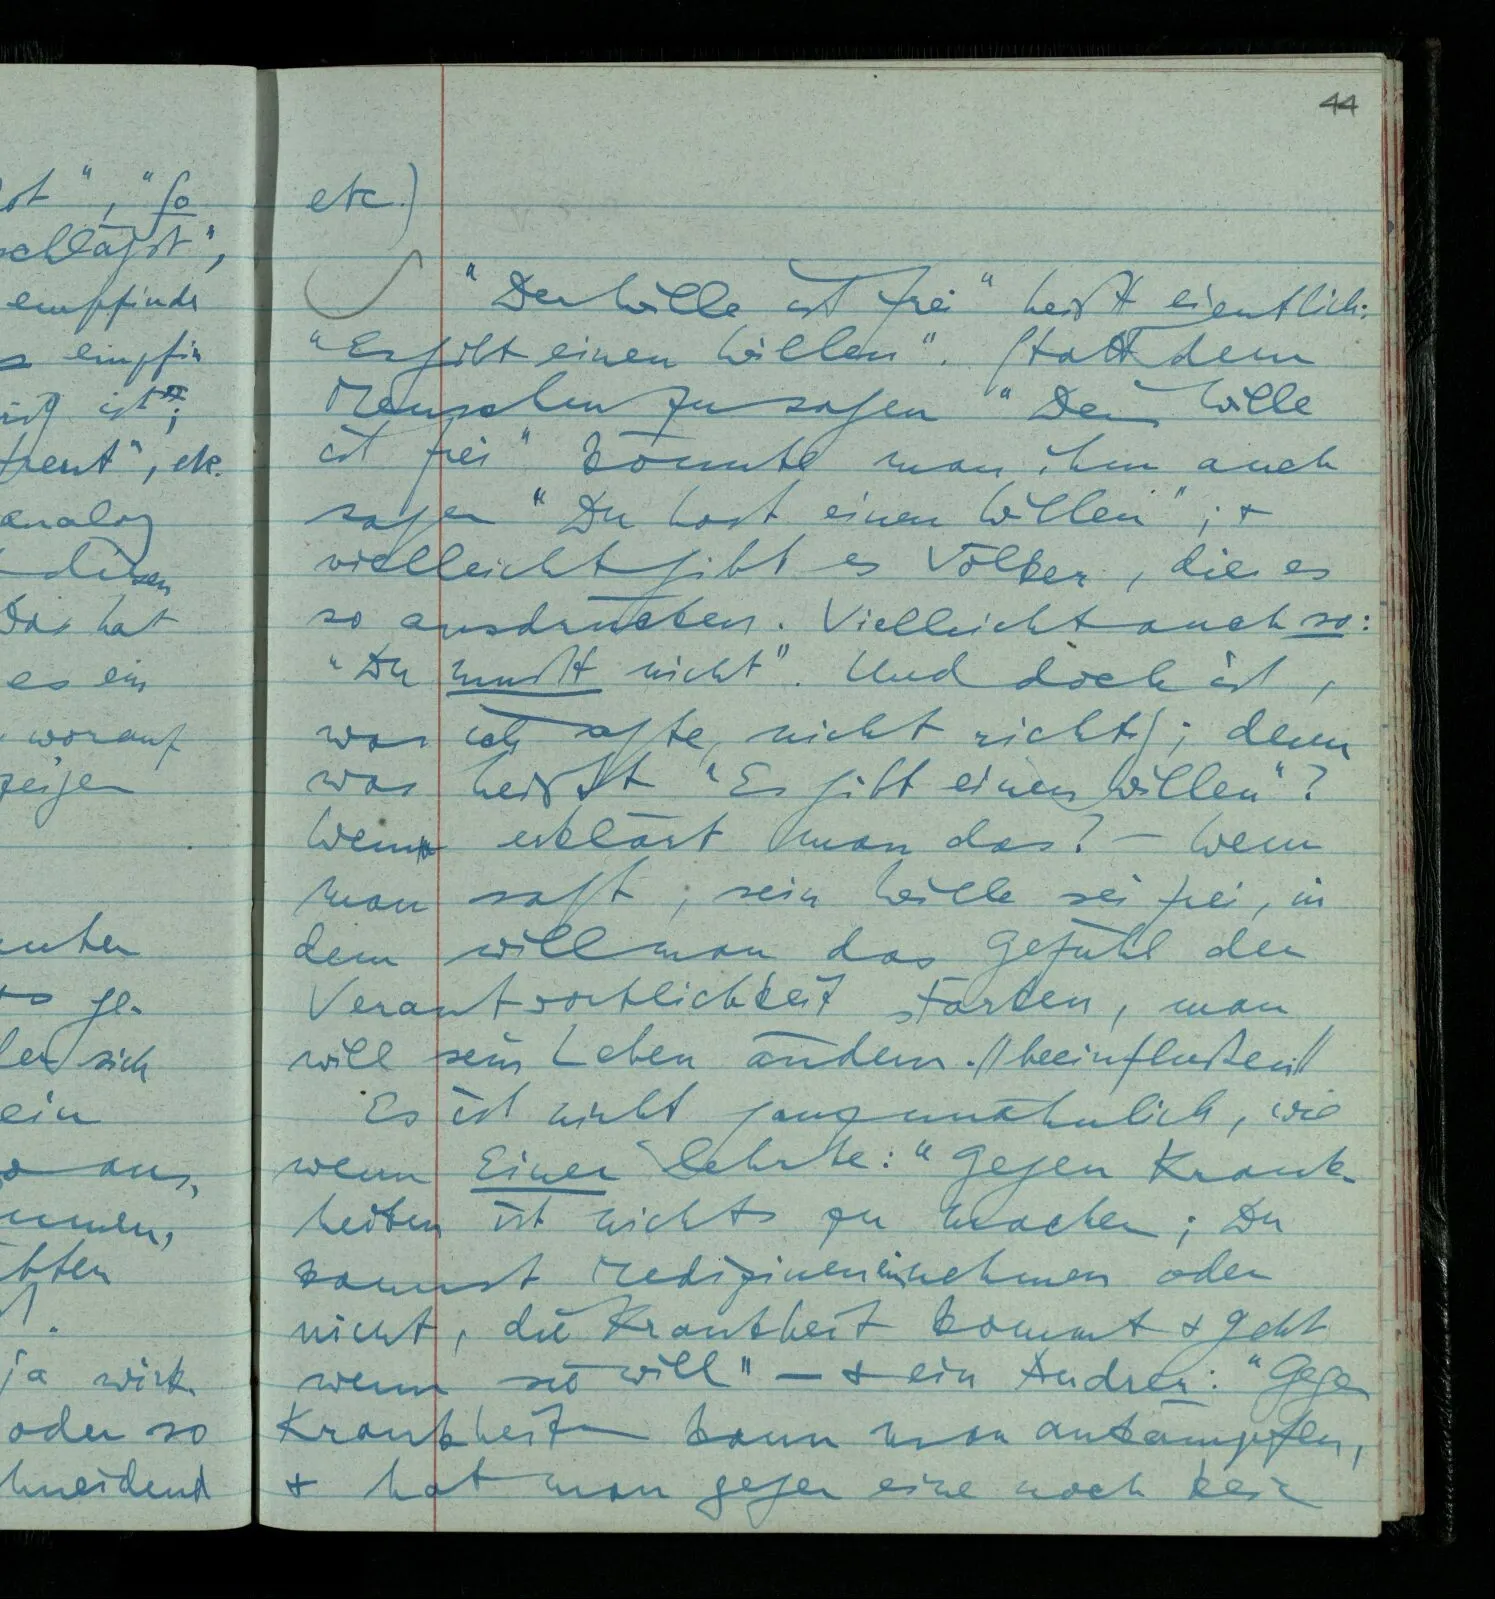 44
etc.)
"Der Wille ist frei" heißt eigentlich:
"Es gibt einen Willen". Statt dem
Menschen zu sagen "Dein Wille
ist frei" könnte man ihm auch
sagen "Du hast einen Willen"; &
vielleicht gibt es Völker, die es
so ausdrücken. Vielleicht auch so:
"Du mußt nicht". Und doch ist,
was ich sagte, nicht richtig; denn
was heißt "Es gibt einen Willen"?
Wem erklärt man das? – Wenn
man sagt, sein Wille sei frei, in
dem will man das Gefühl der
Verantwortlichkeit stärken, man
will sein Leben ändern. //beeinflußen//
Es ist nicht ganz unähnlich, wie
wenn Einer lehrte: "Gegen Krank-
heiten ist nichts zu machen; Du
kannst Medizinen einnehmen oder
nicht, die Krankheit kommt & geht
wenn sie will" – & ein Andrer: "Gegen
Krankheiten kann man ankämpfen,
& hat man gegen eine noch kein
", "so
schlägst",
empfinde
ist";
", etc.
analog
diesen
Das hat
es ein
, worauf
zeigen
ge-
sich
ein
aus,
ja wirk-
oder so